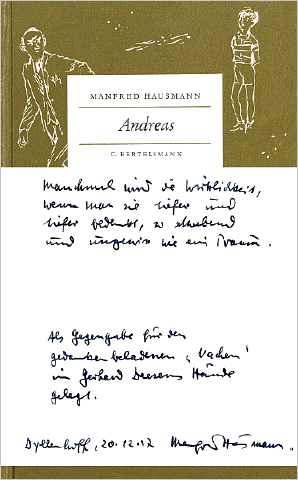 MANFRED HAUSMANN
Andreas
C. BERTELSMANN
Manchmal wird die Wirklichkeit,
wenn man sie tiefer und
tiefer bedenkt, so
und ungewiss wie ein Traum.
Als Gegengabe für den
gedankenbeladenen "Nachen"
in Gerhard Hände
gelegt.
20.12.57 Manfred Hausmann.